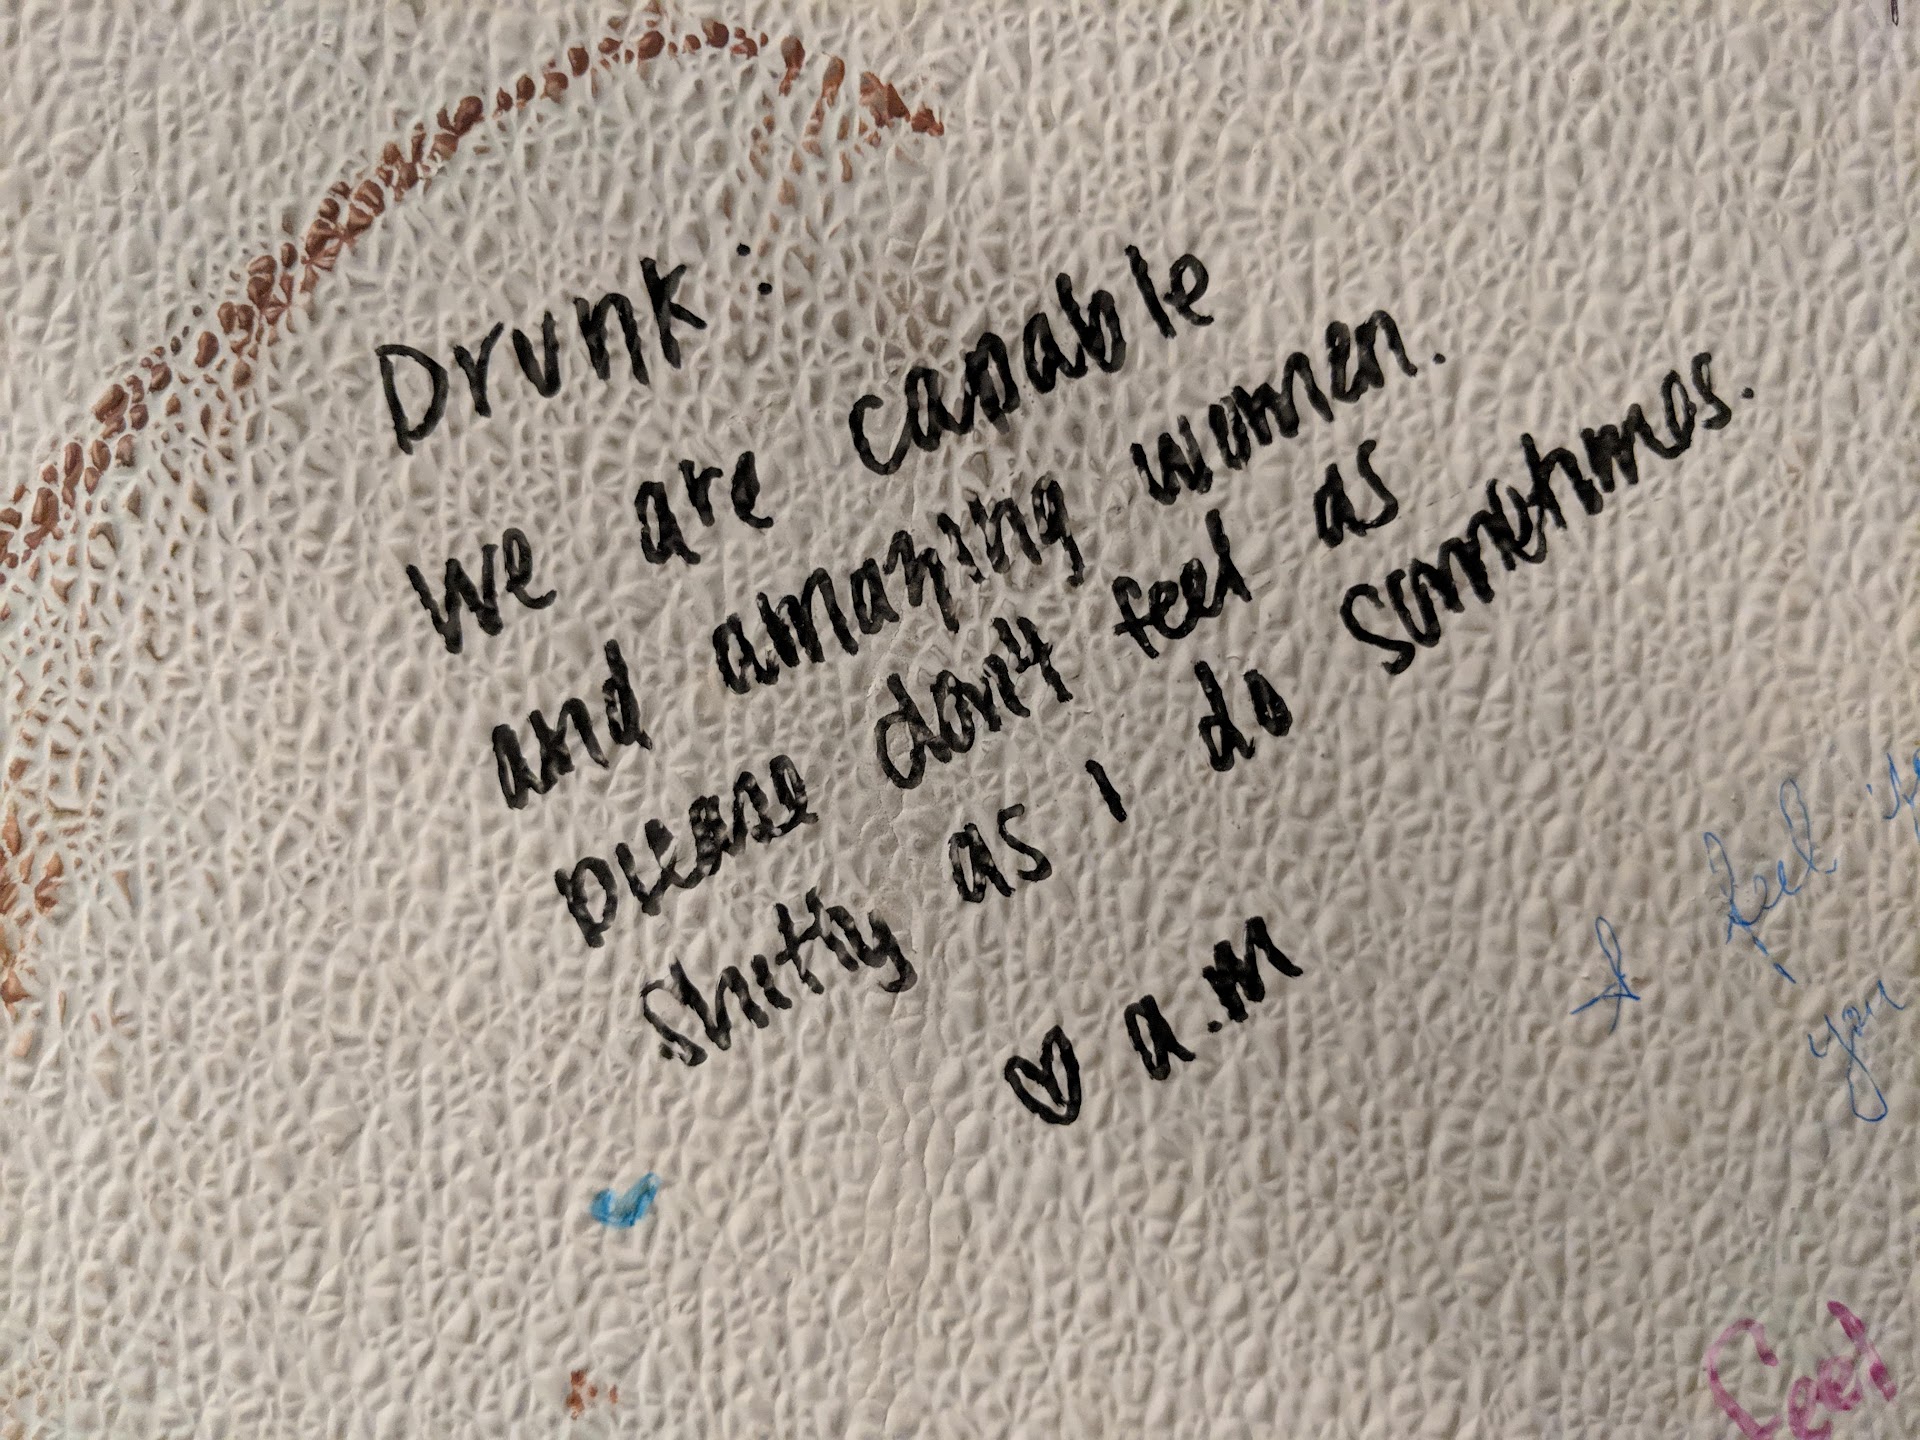 Drunk:
we are capable
and amazing women.
please don't feel as
shitty as I do sometimes.
♡ a.m
I feel
you
feel